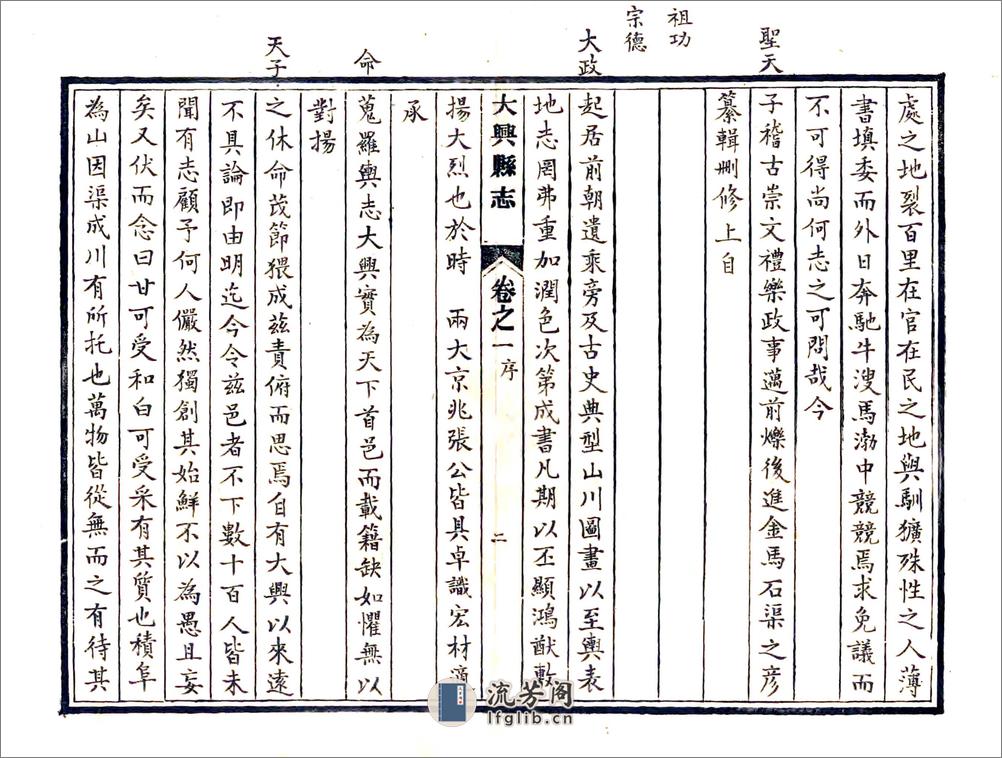 處之地裂百里在官在民之地與馴獷殊性之人薄
書填委而外日奔馳牛溲馬渤中競競焉求免議而
不可得尚何志之可問哉今
聖天子稽古崇文禮樂政事邁前爍後進金馬石渠之彥
纂輯刪修上自
祖功
宗德
大政起居前朝遺乘旁及古史典型山川圖畫以至輿表
地志罔弗重加潤色次第成書凡期以丕顯鴻猷敷
大興縣志 卷之一 序 二
揚大烈也於時 兩大京兆張公皆具卓識宏材
承
命蒐羅輿志大興實為天下首邑而載籍缺如懼無以
對揚
天子之休命茂節猥成茲責俯而思焉自有大興以來遠
不具論即由明迄今令茲邑者不下數十百人皆未
聞有志顧予何人儼然獨創其始鮮不以為愚且妄
矣又伏而念曰甘可受和白可受采有其質也積阜
為山因渠成川有所托也萬物皆從無而之有待其
流芳阁
lfglib.cn